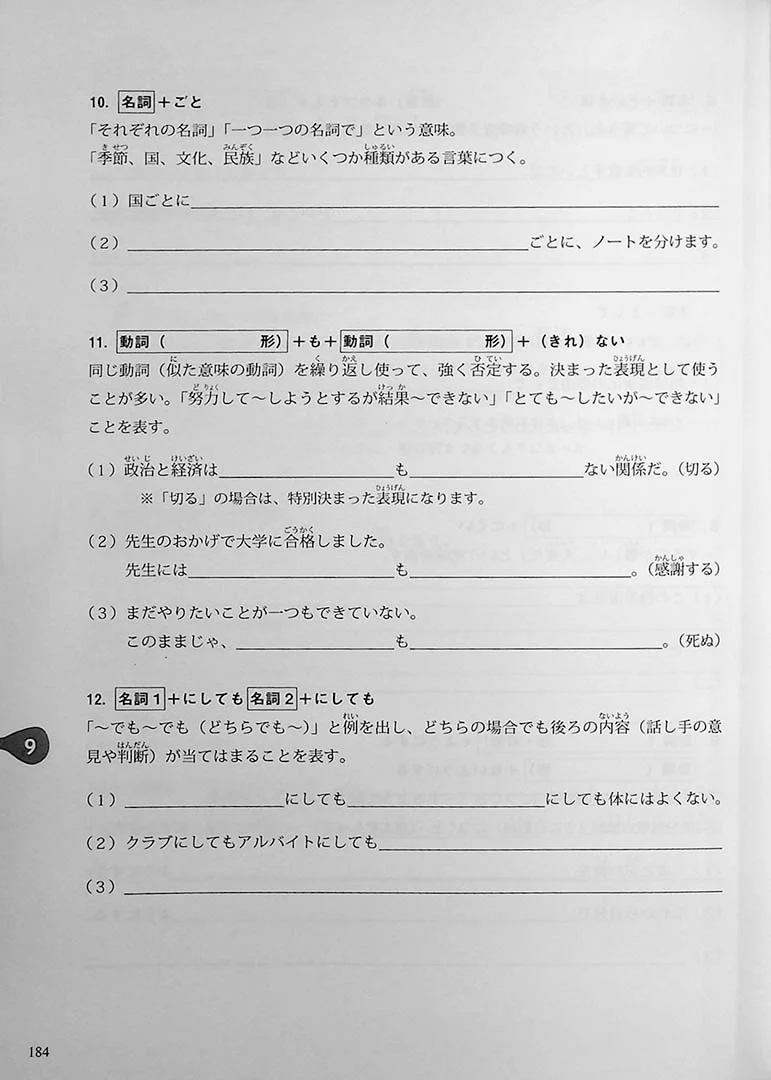 10. 名詞＋ごと
「それぞれの名詞」「一つ一つの名詞で」という意味。
「季節、国、文化、民族」などいくつか種類がある言葉につく。
（1）国ごとに
（2）ごとに、ノートを分けます。
（3）
11. 動詞（形）＋も＋動詞（形）＋（きれ）ない
同じ動詞（似た意味の動詞）を繰り返し使って、強く否定する。決まった表現として使う
ことが多い。「努力して〜しようとするが結果〜できない」「とても〜したいが〜できない」
ことを表す。
（1）政治と経済は も ない関係だ。（切る）
※「切る」の場合は、特別決まった表現になります。
（2）先生のおかげで大学に合格しました。
先生には も 。（感謝する）
（3）まだやりたいことが一つもできていない。
このままじゃ、 も 。（死ぬ）
12. 名詞1＋にしても名詞2＋にしても
「〜でも〜でも（どちらでも〜）」と例を出し、どちらの場合でも後ろの内容（話し手の意
見や判断）が当てはまることを表す。
（1） にしても にしても体にはよくない。
（2）クラブにしてもアルバイトにしても
（3）
9
184